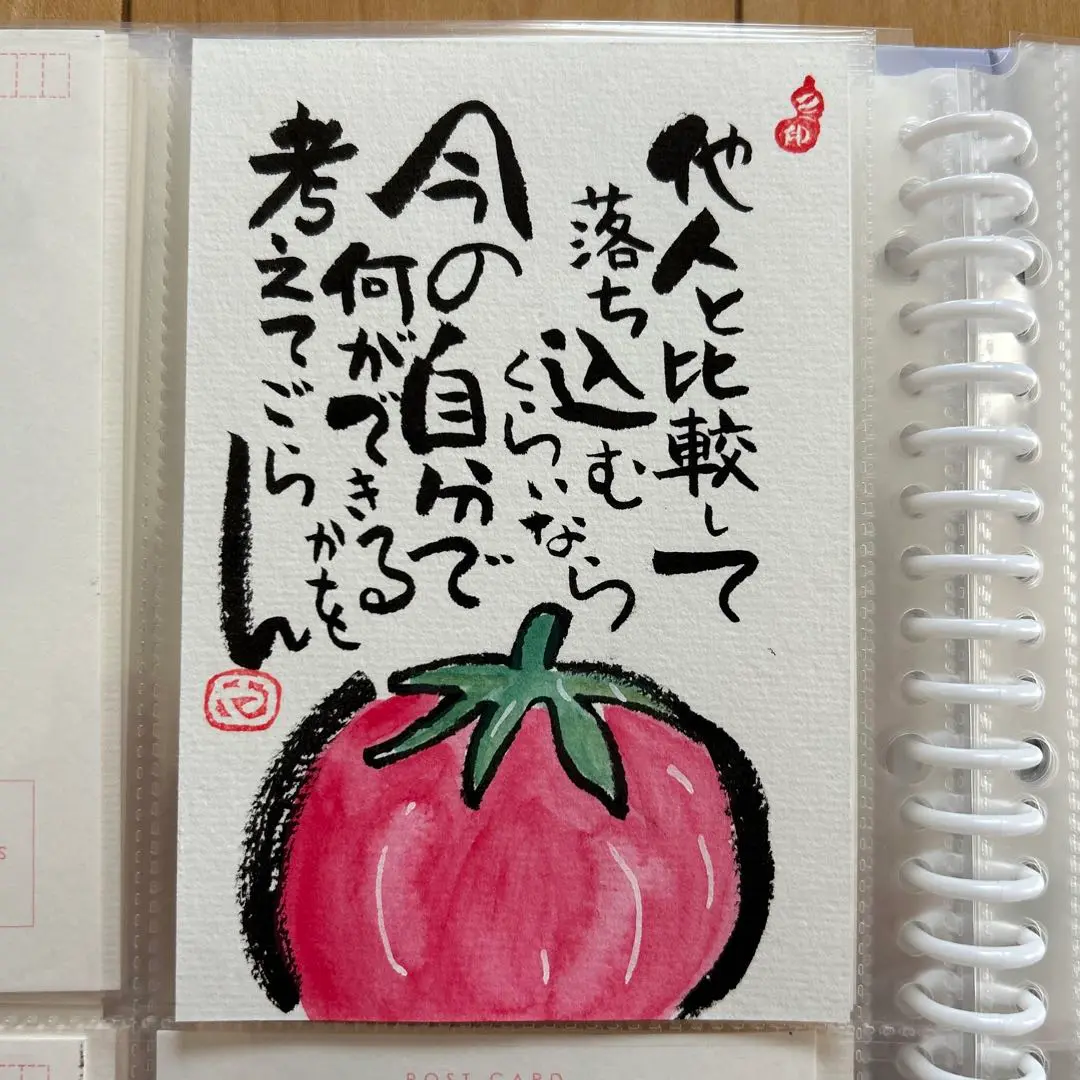 他人と比較して
落ち込む
くらいなら
今の自分で
何ができる
かを
考えてごらん
POST CARD
S